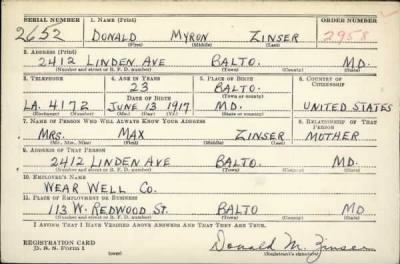 SERIAL NUMBER 1. NAME (Print) ORDER NUMBER
2652 DONALD MYRON ZINSER 2958
(First) (Middle) (Last)
2. ADDRESS (Print)
2412 LINDEN AVE BALTO. MD.
(Number and street or R. F. D. number) (Town) (County) (State)
3. TELEPHONE 4. AGE IN YEARS 5. PLACE OF BIRTH 6. COUNTRY OF CITIZENSHIP
23 BALTO.
DATE OF BIRTH (Town or county)
LA. 4172 JUNE 13 1917 MD. UNITED STATES
(Exchange) (Number) (Mo.) (Day) (Yr.) (State or country)
7. NAME OF PERSON WHO WILL ALWAYS KNOW YOUR ADDRESS 8. RELATIONSHIP OF THAT PERSON
MRS. MAX ZINSER MOTHER
(Mr., Mrs., Miss) (First) (Middle) (Last)
9. ADDRESS OF THAT PERSON
2412 LINDEN AVE BALTO. MD.
(Number and street or R. F. D. number) (Town) (County) (State)
10. EMPLOYER'S NAME
WEAR WELL CO.
11. PLACE OF EMPLOYMENT OR BUSINESS
113 W. REDWOOD ST. BALTO MD
(Number and street or R. F. D. number) (Town) (County) (State)
I AFFIRM THAT I HAVE VERIFIED ABOVE ANSWERS AND THAT THEY ARE TRUE.
REGISTRATION CARD
D. S. S. Form 1 (over) Donald M. Zinser
(Registrant's signature)